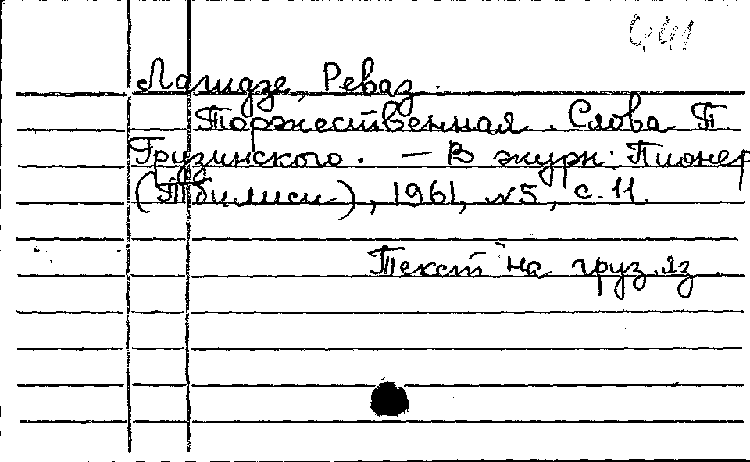 441
Лагидзе, Реваз.
Торжественная. Слова Т
Грузинского. — В журн: Пионер
(Тбилиси), 1961, №5, с. 11.
Текст на груз. яз